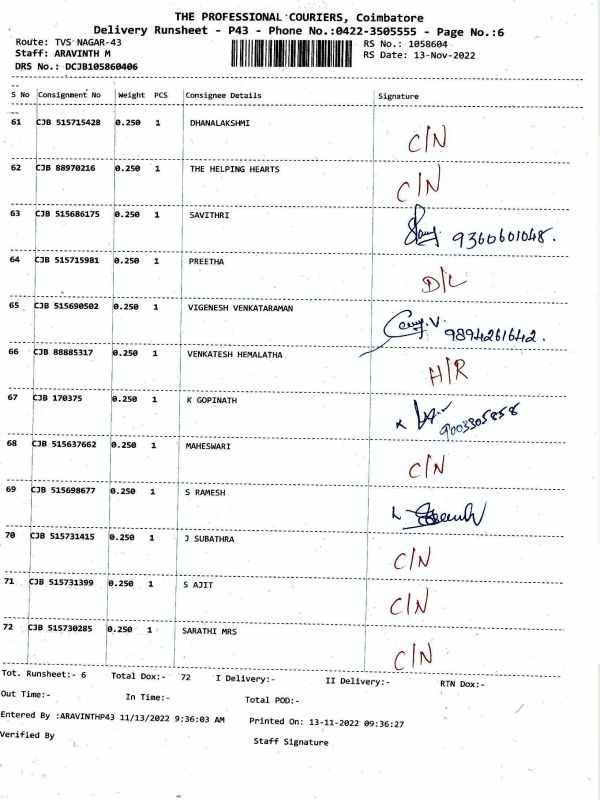 THE PROFESSIONAL COURIERS, Coimbatore
Delivery Runsheet - P43 - Phone No.:0422-3505555 - Page No.:6
Route: TVS NAGAR-43 RS No.: 1058604
Staff: ARAVINTH M RS Date: 13-Nov-2022
DRS No.: DCJB105860406
S No Consignment No Weight PCS Consignee Details Signature
61 CJB 515715428 0.250 1 DHANALAKSHMI C/N
62 CJB 88970216 0.250 1 THE HELPING HEARTS C/N
63 CJB 515686175 0.250 1 SAVITHRI 9360601048.
64 CJB 515715981 0.250 1 PREETHA D/L
65 CJB 515690502 0.250 1 VIGENESH VENKATARAMAN 9894261642.
66 CJB 88885317 0.250 1 VENKATESH HEMALATHA H/R
67 CJB 170375 0.250 1 K GOPINATH 9003305858
68 CJB 515637662 0.250 1 MAHESWARI C/N
69 CJB 515698677 0.250 1 S RAMESH
70 CJB 515731415 0.250 1 J SUBATHRA C/N
71 CJB 515731399 0.250 1 S AJIT C/N
72 CJB 515730285 0.250 1 SARATHI MRS C/N
Tot. Runsheet:- 6 Total Dox:- 72 I Delivery:- II Delivery:- RTN Dox:-
Out Time:- In Time:- Total POD:-
Entered By :ARAVINTHP43 11/13/2022 9:36:03 AM Printed On: 13-11-2022 09:36:27
Verified By Staff Signature